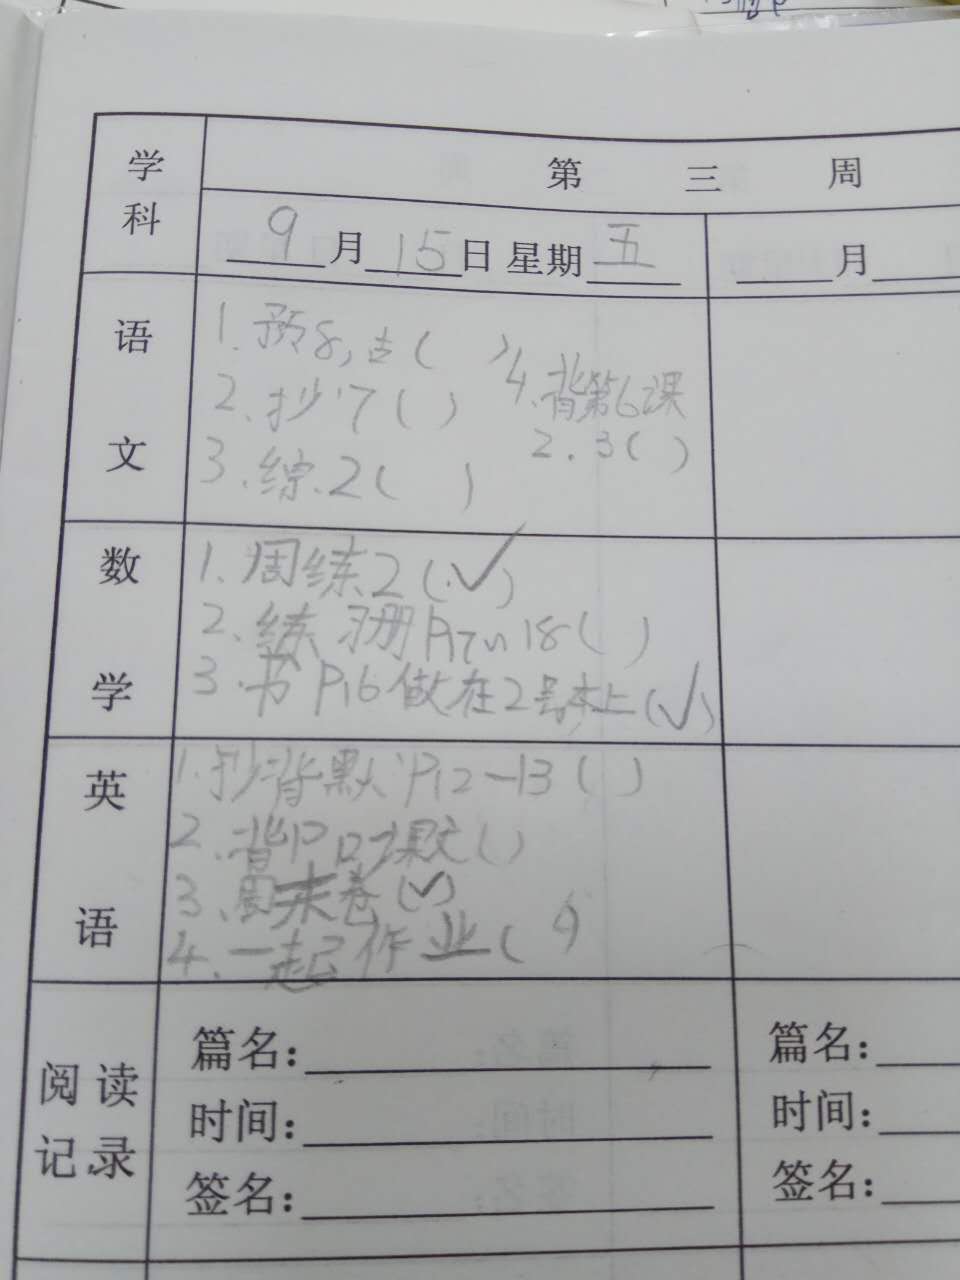 学科
第 三 周
9月15日 星期五
月
语文
1.预8,古( )
2.抄7( )
3.综.2( )
4.背第6课
2.3( )
数学
1.周练2(√)
2.练习册P17~18( )
3.书P16做在2号本上(√)
英语
1.抄背默P12—13( )
2.背 课文( )
3.周末卷(√)
4.一起作业( )
阅读记录
篇名:
时间:
签名:
篇名:
时间:
签名: